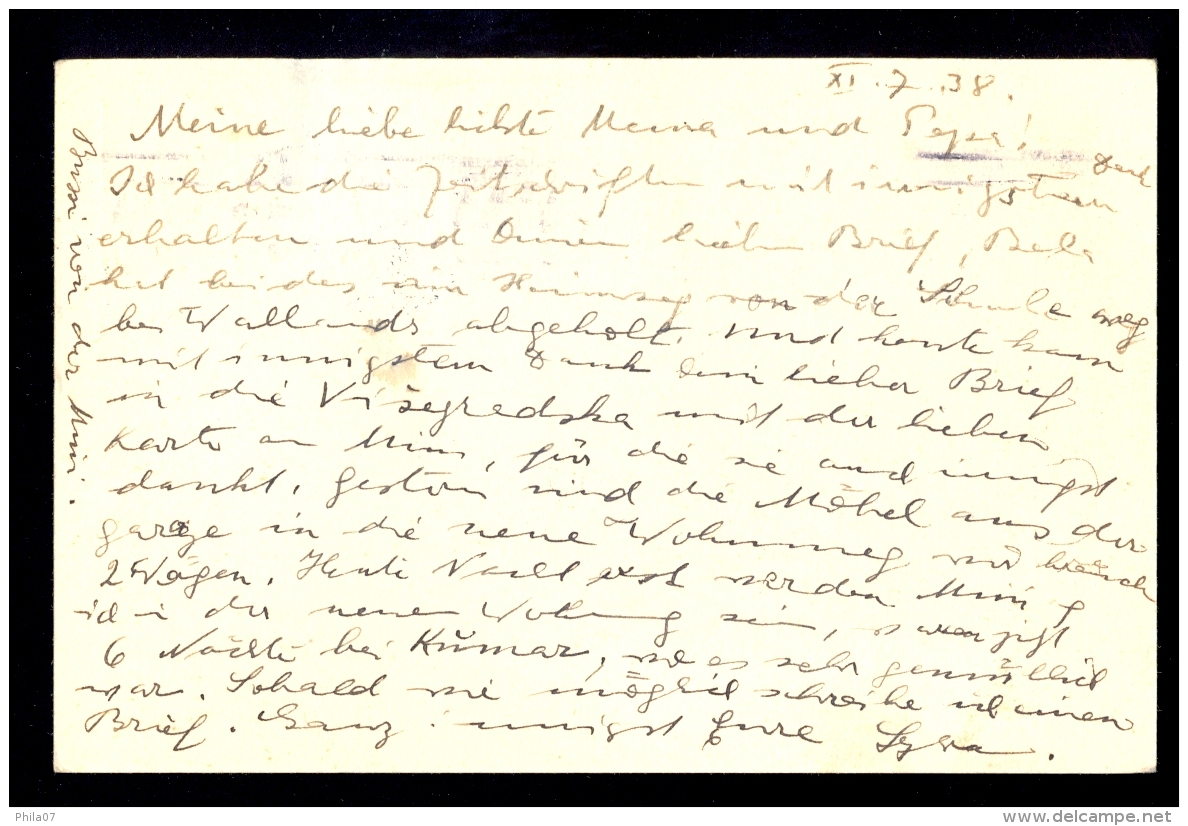 XI. 7. 38.
Meine liebe liebste Mama und Papa!
Ich habe die Zeitschriften mit innigstem Dank
erhalten und Deinen lieben Brief, Bela
hat beides am Heimweg von der Schule weg
bei Wallands abgeholt. Und heute kam
mit innigstem Dank Dein lieber Brief
in die Višegradska mit der lieben
Karte an Mimi, für die sie auch innigst
dankt. Gestern sind die Möbel aus der
garage in die neue Wohnung
2 Wägen. Heute Nacht erst werden Mimi &
ich in der neuen Wohnung sein, jetzt
6 Nächte bei Kumar, wo es sehr gemütlich
war. Sobald wie möglich schreibe ich einen
Brief. Ganz innigst Eure
Bussi von der Mimi.
Phila07
www.delcampe.net